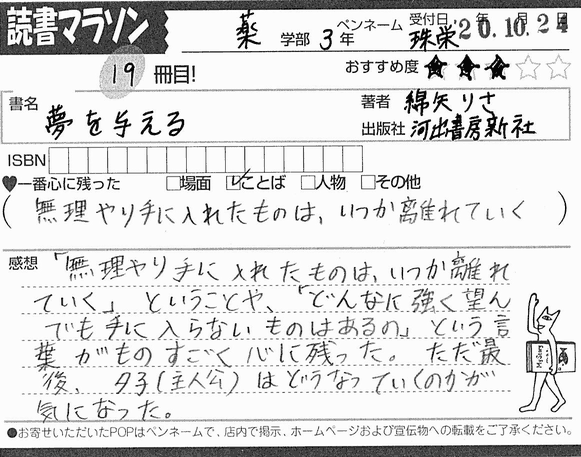 読書マラソン
薬 学部 3年 ペンネーム 珠栄 受付日 '20.10.24
19 冊目!
おすすめ度 ★★★☆☆
書名 夢を与える
著者 綿矢りさ
出版社 河出書房新社
ISBN
♥一番心に残った □場面 ☑ことば □人物 □その他
(無理やり手に入れたものは、いつか離れていく)
感想 「無理やり手に入れたものは、いつか離れ
ていく」ということや、「どんなに強く望ん
でも手に入らないものはあるの」という言
葉がものすごく心に残った。ただ最
後、夕子(主人公)はどうなっていくのかが
気になった。
●お寄せいただいたPOPはペンネームで、店内で掲示、ホームページおよび宣伝物への転載をご了承ください。